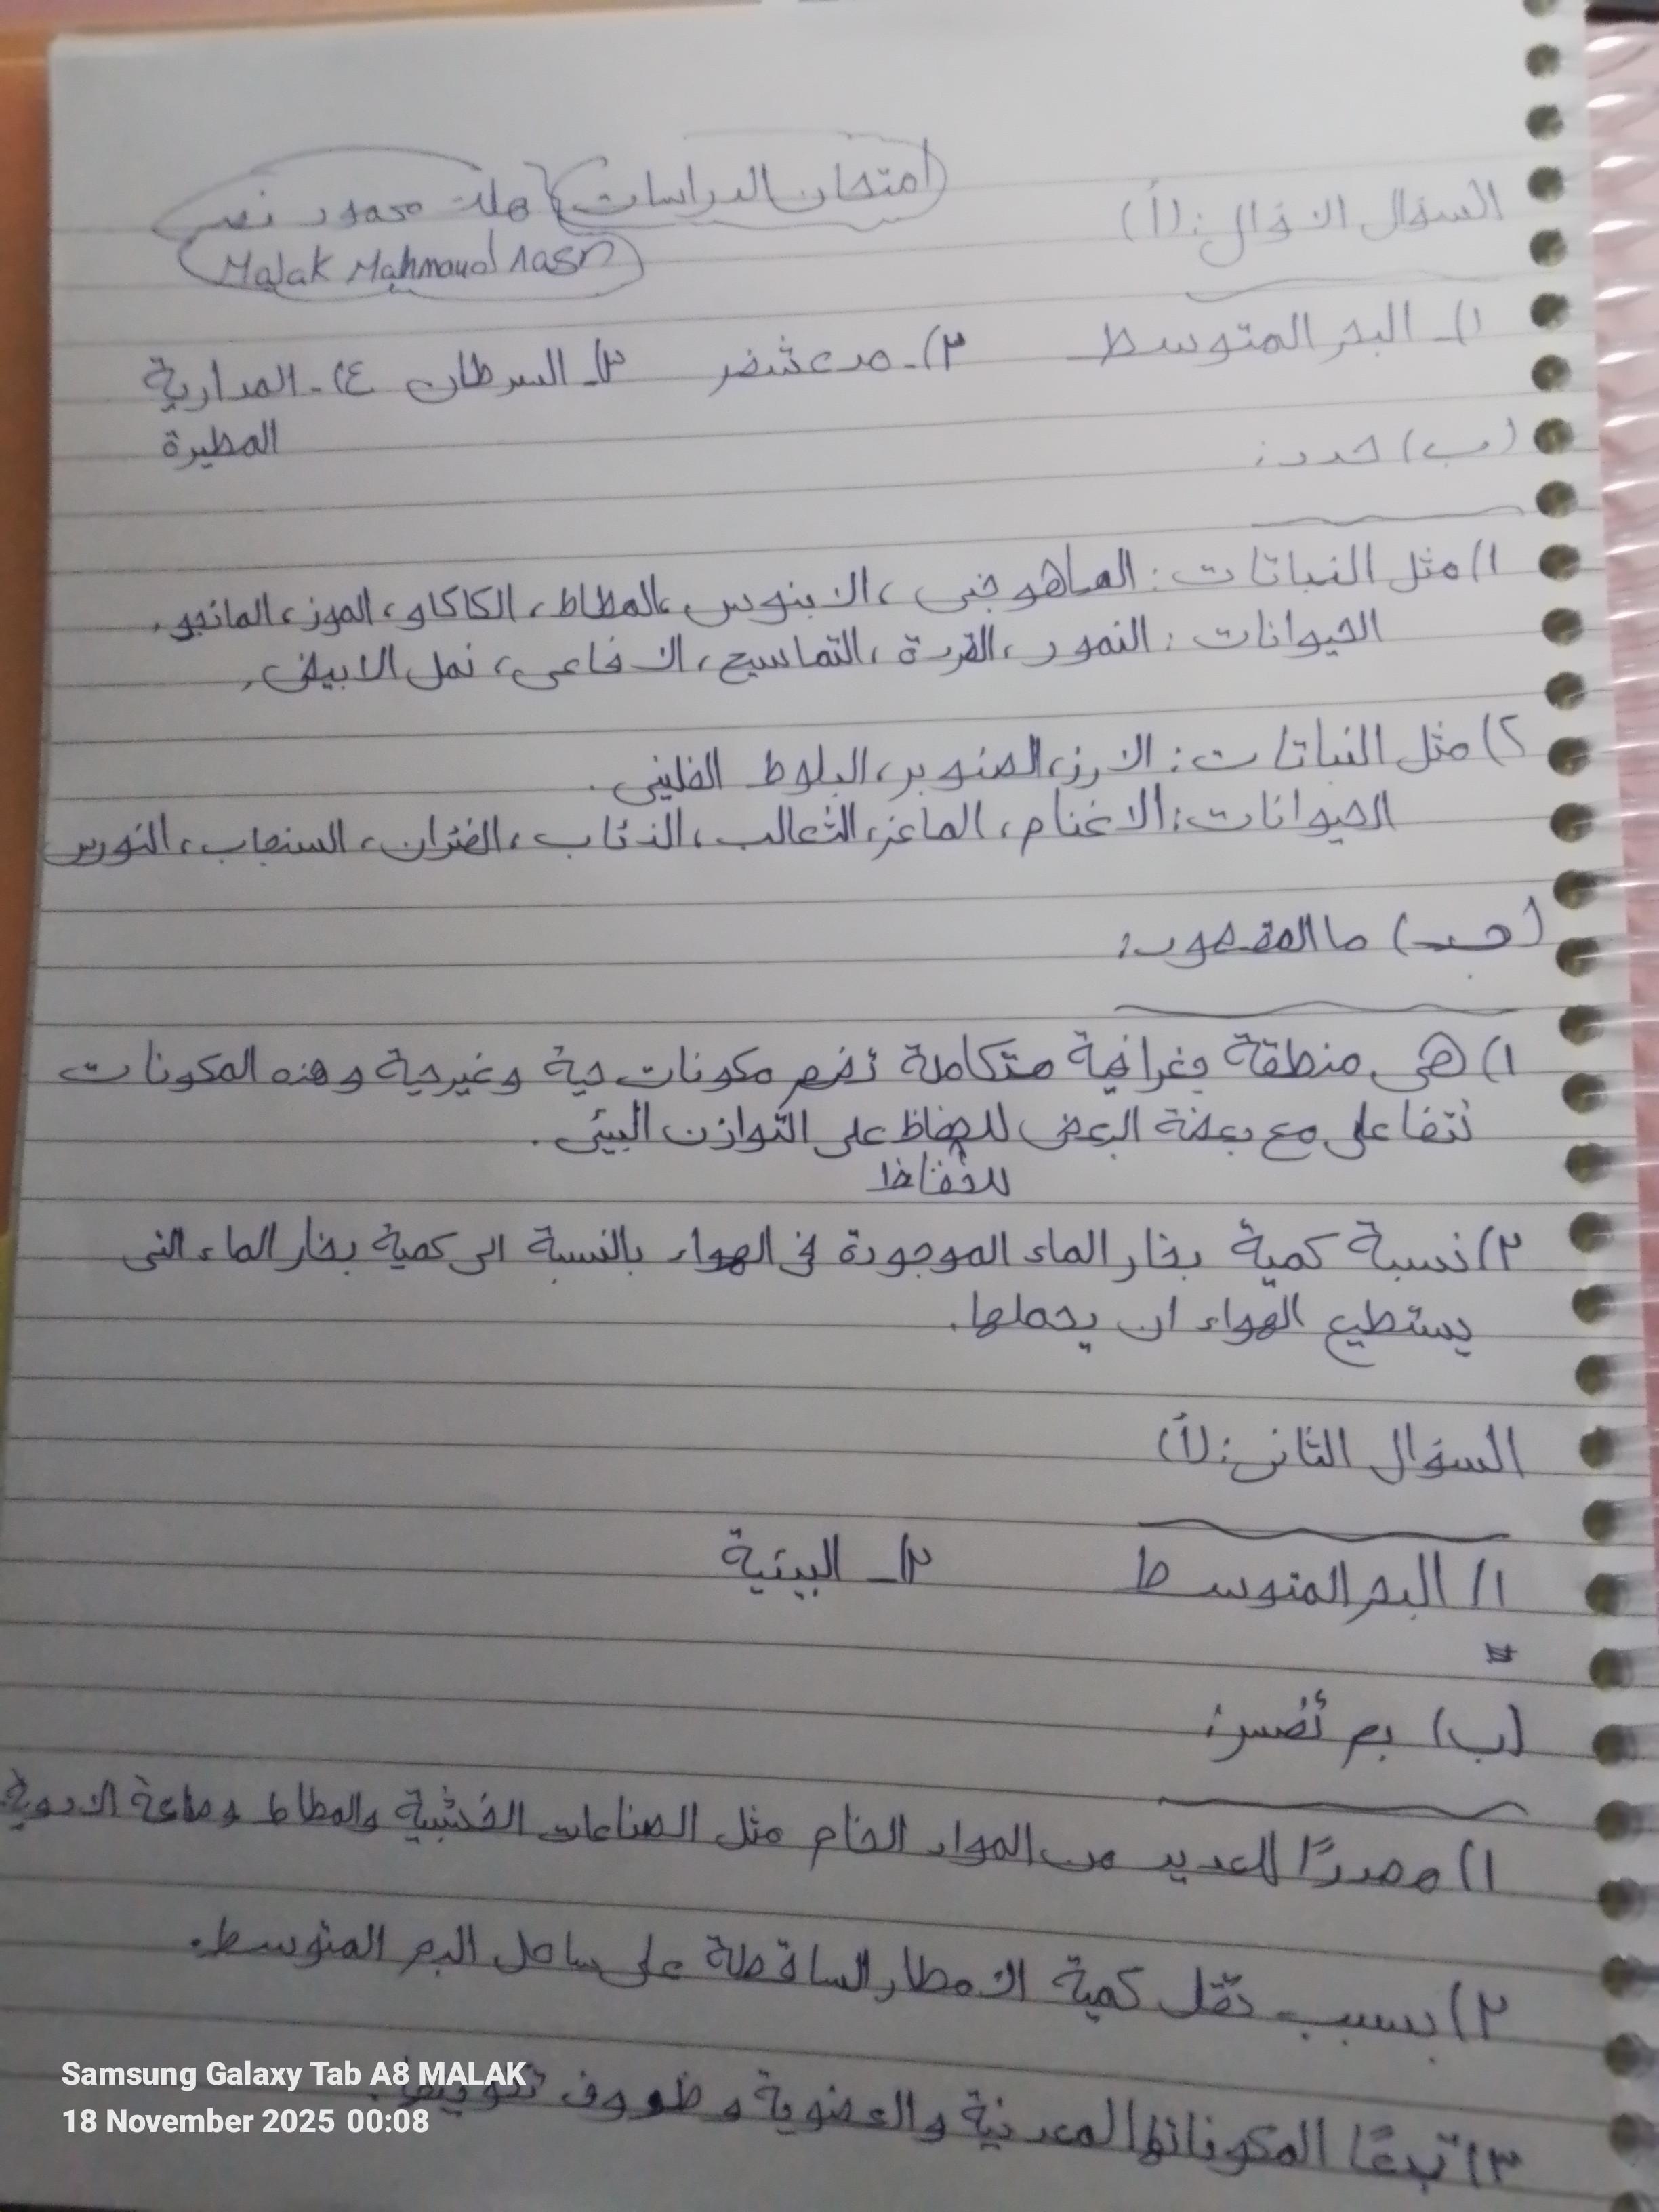 امتحان الدراسات ملك محمود نصر
Malak Mahmoud nasr
السؤال الاول: (أ)
١)ـ البحر المتوسط ٢)ـ مدغشقر ٣)ـ السرطان ٤)ـ المدارية
المطيرة
(ب) حدد:
١) مثل النباتات: الماهوجنى، الابنوس، المطاط، الكاكاو، الموز، المانجو.
الحيوانات: النمور، القردة، التماسيح، الافاعى، نمل الابيض.
٢) مثل النباتات: الارز، الصنوبر، البلوط الفلينى.
الحيوانات: الاغنام، الماعز، الثعالب، الذئاب، الفئران، السنجاب، النورس
(جـ) ما المقصود:
١) هى منطقة جغرافية متكاملة تضم مكونات حية وغيرحية وهذه المكونات
تتفاعل مع بعضة البعض للحفاظ على التوازن البيئى.
للحفاظ
٢) نسبة كمية بخار الماء الموجودة فى الهواء بالنسبة الى كمية بخار الماء التى
يستطيع الهواء ان يحملها.
السؤال الثانى: (أ)
١) البحر المتوسط ٢)ـ البيئية
(ب) بم تفسر:
١) مصدرًا للعديد من المواد الخام مثل الصناعات الخشبية والمطاط وصناعة الادوية.
٢) بسبب تقل كمية الامطار الساقطة على ساحل البحر المتوسط.
٣) تبعًا المكوناتها المعدنية والعضوية وظروف تكوينها.
Samsung Galaxy Tab A8 MALAK
18 November 2025 00:08